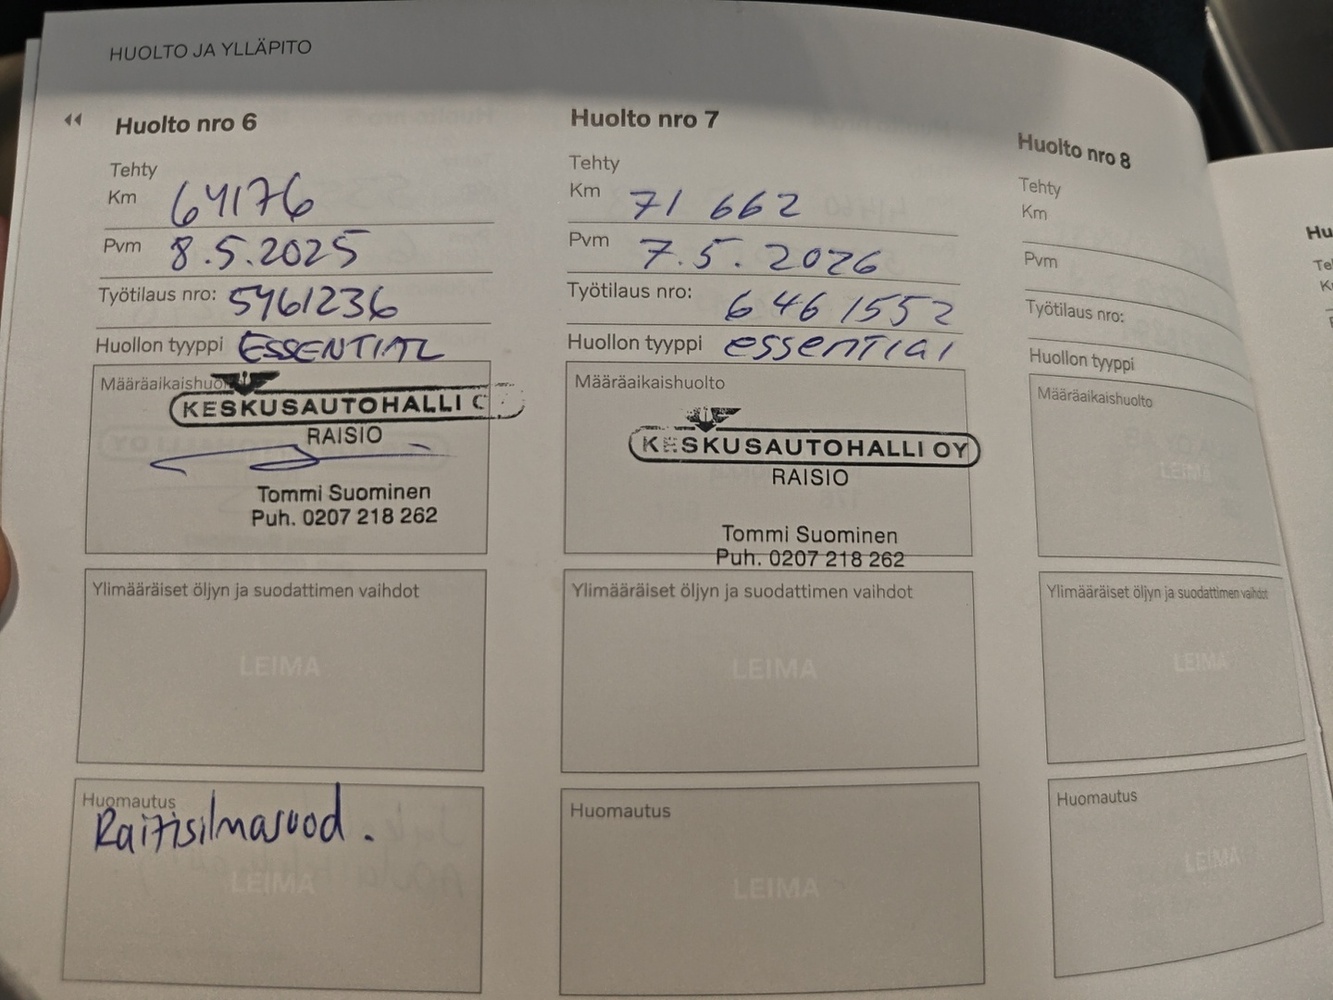 HUOLTO JA YLLÄPITO
Huolto nro 6
Tehty
Km 64176
Pvm 8.5.2025
Työtilaus nro: 5461236
Huollon tyyppi ESSENTIAL
Määräaikaishuol
KESKUSAUTOHALLI O
RAISIO
Tommi Suominen
Puh. 0207 218 262
Ylimääräiset öljyn ja suodattimen vaihdot
LEIMA
Huomautus
Raitisilmasuod.
LEIMA
Huolto nro 7
Tehty
Km 71 662
Pvm 7.5.2026
Työtilaus nro: 6461552
Huollon tyyppi essential
Määräaikaishuolto
KESKUSAUTOHALLI OY
RAISIO
Tommi Suominen
Puh. 0207 218 262
Ylimääräiset öljyn ja suodattimen vaihdot
LEIMA
Huomautus
LEIMA
Huolto nro 8
Tehty
Km
Pvm
Työtilaus nro:
Huollon tyyppi
Määräaikaishuolto
LEIMA
Ylimääräiset öljyn ja suodattimen vaihdot
LEIMA
Huomautus
LEIMA
Hu